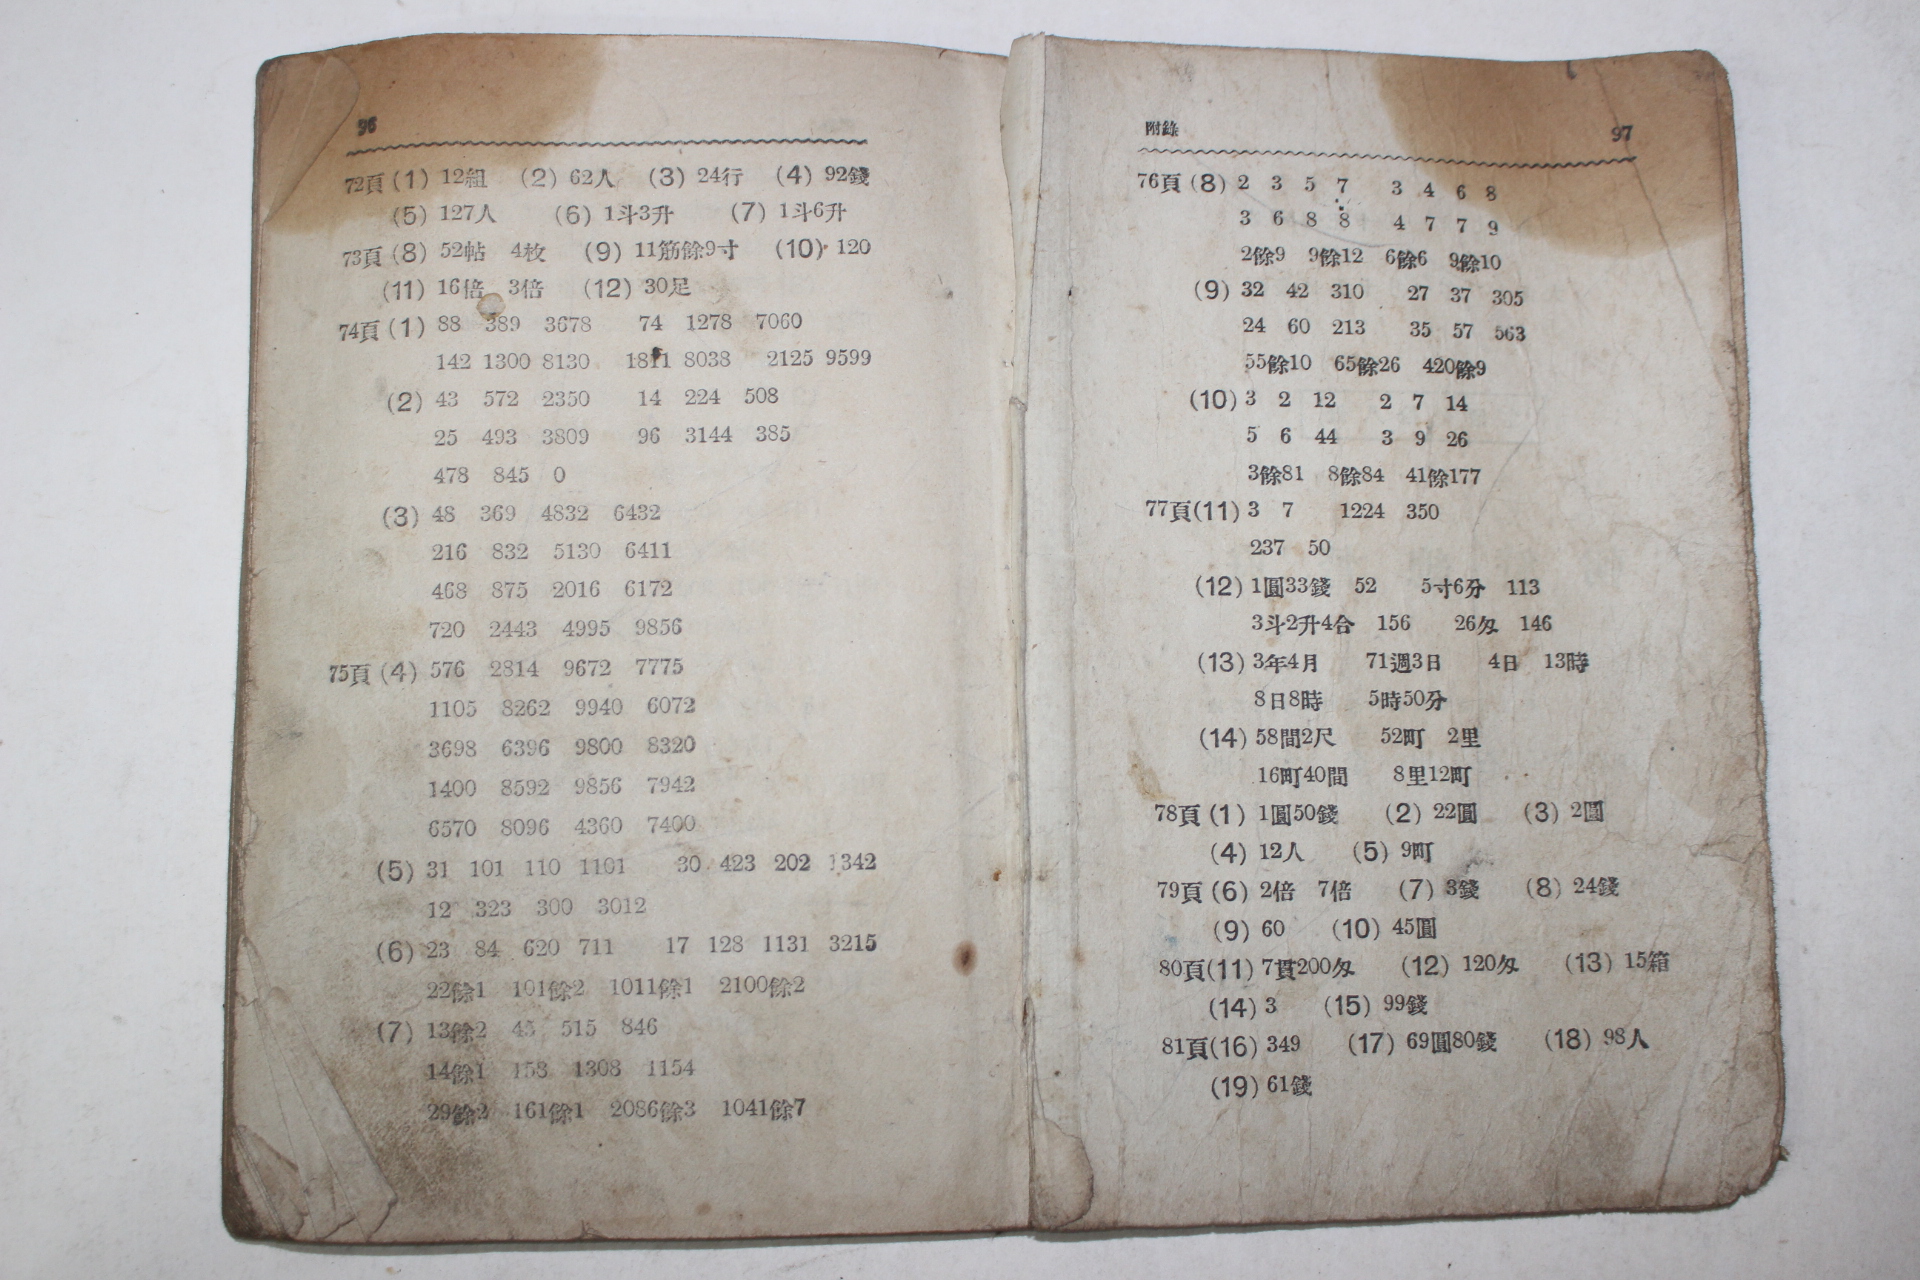 96
72頁 (1) 12組 (2) 62人 (3) 24行 (4) 92錢
(5) 127人 (6) 1斗3升 (7) 1斗6升
73頁 (8) 52帖 4枚 (9) 11筋餘9寸 (10) 120
(11) 16倍 3倍 (12) 30足
74頁 (1) 88 389 3678 74 1278 7060
142 1300 8130 1811 8038 2125 9599
(2) 43 572 2350 14 224 508
25 493 3809 96 3144 385
478 845 0
(3) 48 369 4832 6432
216 832 5130 6411
468 875 2016 6172
720 2443 4995 9856
75頁 (4) 576 2814 9672 7775
1105 8262 9940 6072
3698 6396 9800 8320
1400 8592 9856 7942
6570 8096 4360 7400
(5) 31 101 110 1101 30 423 202 1342
12 323 300 3012
(6) 23 84 620 711 17 128 1131 3215
22餘1 101餘2 1011餘1 2100餘2
(7) 13餘2 45 515 846
14餘1 153 1308 1154
29餘2 161餘1 2086餘3 1041餘7
附錄 97
76頁 (8) 2 3 5 7 3 4 6 8
3 6 8 8 4 7 7 9
2餘9 9餘12 6餘6 9餘10
(9) 32 42 310 27 37 305
24 60 213 35 57 563
55餘10 65餘26 420餘9
(10) 3 2 12 2 7 14
5 6 44 3 9 26
3餘81 8餘84 41餘177
77頁(11) 3 7 1224 350
237 50
(12) 1圓33錢 52 5寸6分 113
3斗2升4合 156 26匁 146
(13) 3年4月 71週3日 4日 13時
8日8時 5時50分
(14) 58間2尺 52町 2里
16町40間 8里12町
78頁 (1) 1圓50錢 (2) 22圓 (3) 2圓
(4) 12人 (5) 9町
79頁 (6) 2倍 7倍 (7) 3錢 (8) 24錢
(9) 60 (10) 45圓
80頁(11) 7貫200匁 (12) 120匁 (13) 15箱
(14) 3 (15) 99錢
81頁(16) 349 (17) 69圓80錢 (18) 98人
(19) 61錢